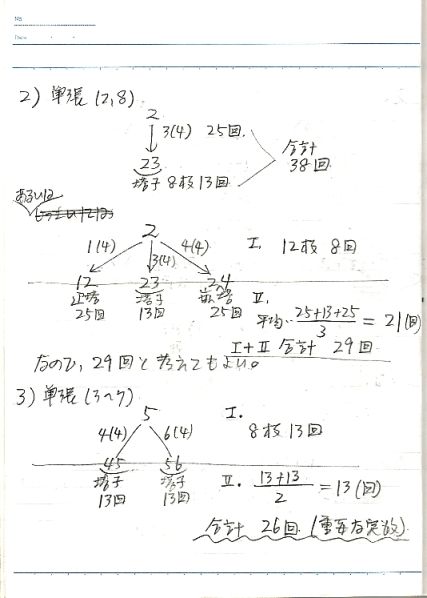 No.
Date
2) 単張 (2,8)
2
3(4) 25回.
23
塔子 8枚 13回
合計
38回
あるいは
2
1(4) 3(4) 4(4)
I. 12枚 8回
12 23 24
辺塔 塔子 嵌塔
25回 13回 25回
II.
平均.. 25+13+25/3 = 21(回)
I+II 合計 29回
なので, 29回と考えてもよい。
3) 単張 (3~7)
5
4(4) 6(4)
I.
8枚 13回
45 56
塔子 塔子
13回 13回
II. 13+13/2 = 13(回)
合計 26回. (重要な定数)